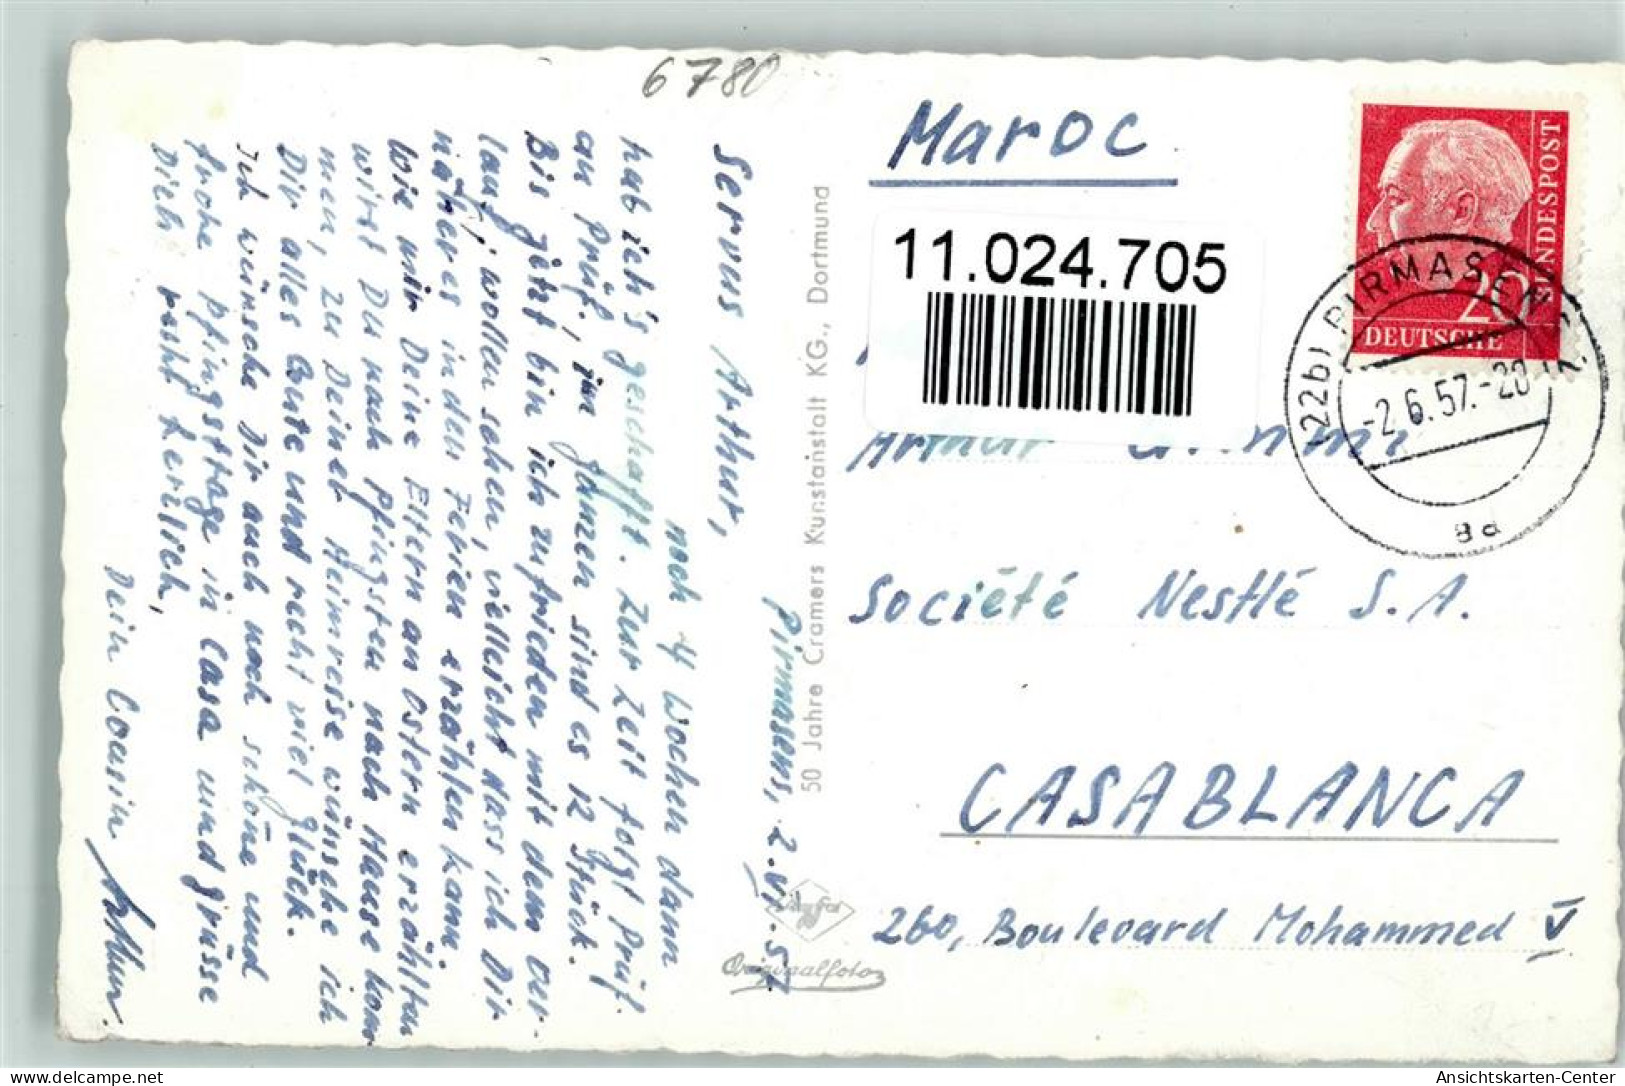 6780
Pirmasens, 2.VI.57.
Servus Arthur,
noch 4 Wochen dann
hab ich's geschafft. Zur Zeit folgt Prüf.
an Prüf., im ganzen sind es 12 Stück.
Bis jetzt bin ich zufrieden mit dem Ver-
lauf, wollen sehen, vielleicht dass ich Dir
näheres in den Ferien erzählen kann.
Wie mir Deine Eltern an Ostern erzählten
wirst Du nach Pfingsten nach Hause kom-
men, zu Deiner Heimreise wünsche ich
Dir alles Gute und recht viel Glück.
Ich wünsche Dir auch noch schöne und
frohe Pfingsttage in Casa und grüsse
Dich recht herzlich,
Dein Cousin
Arthur.
50 Jahre Cramers Kunstanstalt KG., Dortmund
Originalfoto
Maroc
11.024.705
Arthur
Société Nestlé S.A.
CASABLANCA
260, Boulevard Mohammed V
BUNDESPOST
20
DEUTSCHE
(22b) PIRMASENS
-2.6.57.-20
Ansichtskarten-Center